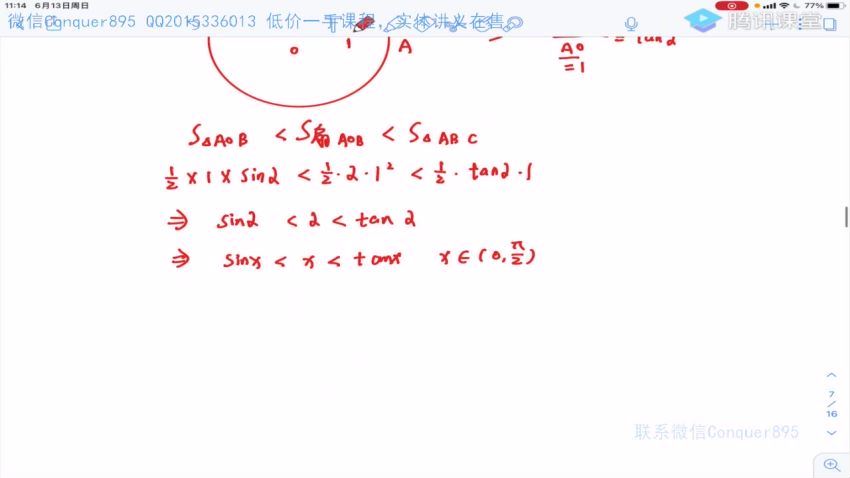 11:14 6月13日周日
77%
微信Conquer895 QQ2015336013 低价一手课程，实体讲义在售。
腾讯课堂
0 1 A
= AO = tan2
=1
S△AOB < S扇AOB < S△ABC
1/2 × 1 × sin2 < 1/2 · 2 · 1² < 1/2 · tan2 · 1
⇒ sin2 < 2 < tan 2
⇒ sinx < x < tanx x ∈ (0, π/2)
7
/
16
联系微信Conquer895